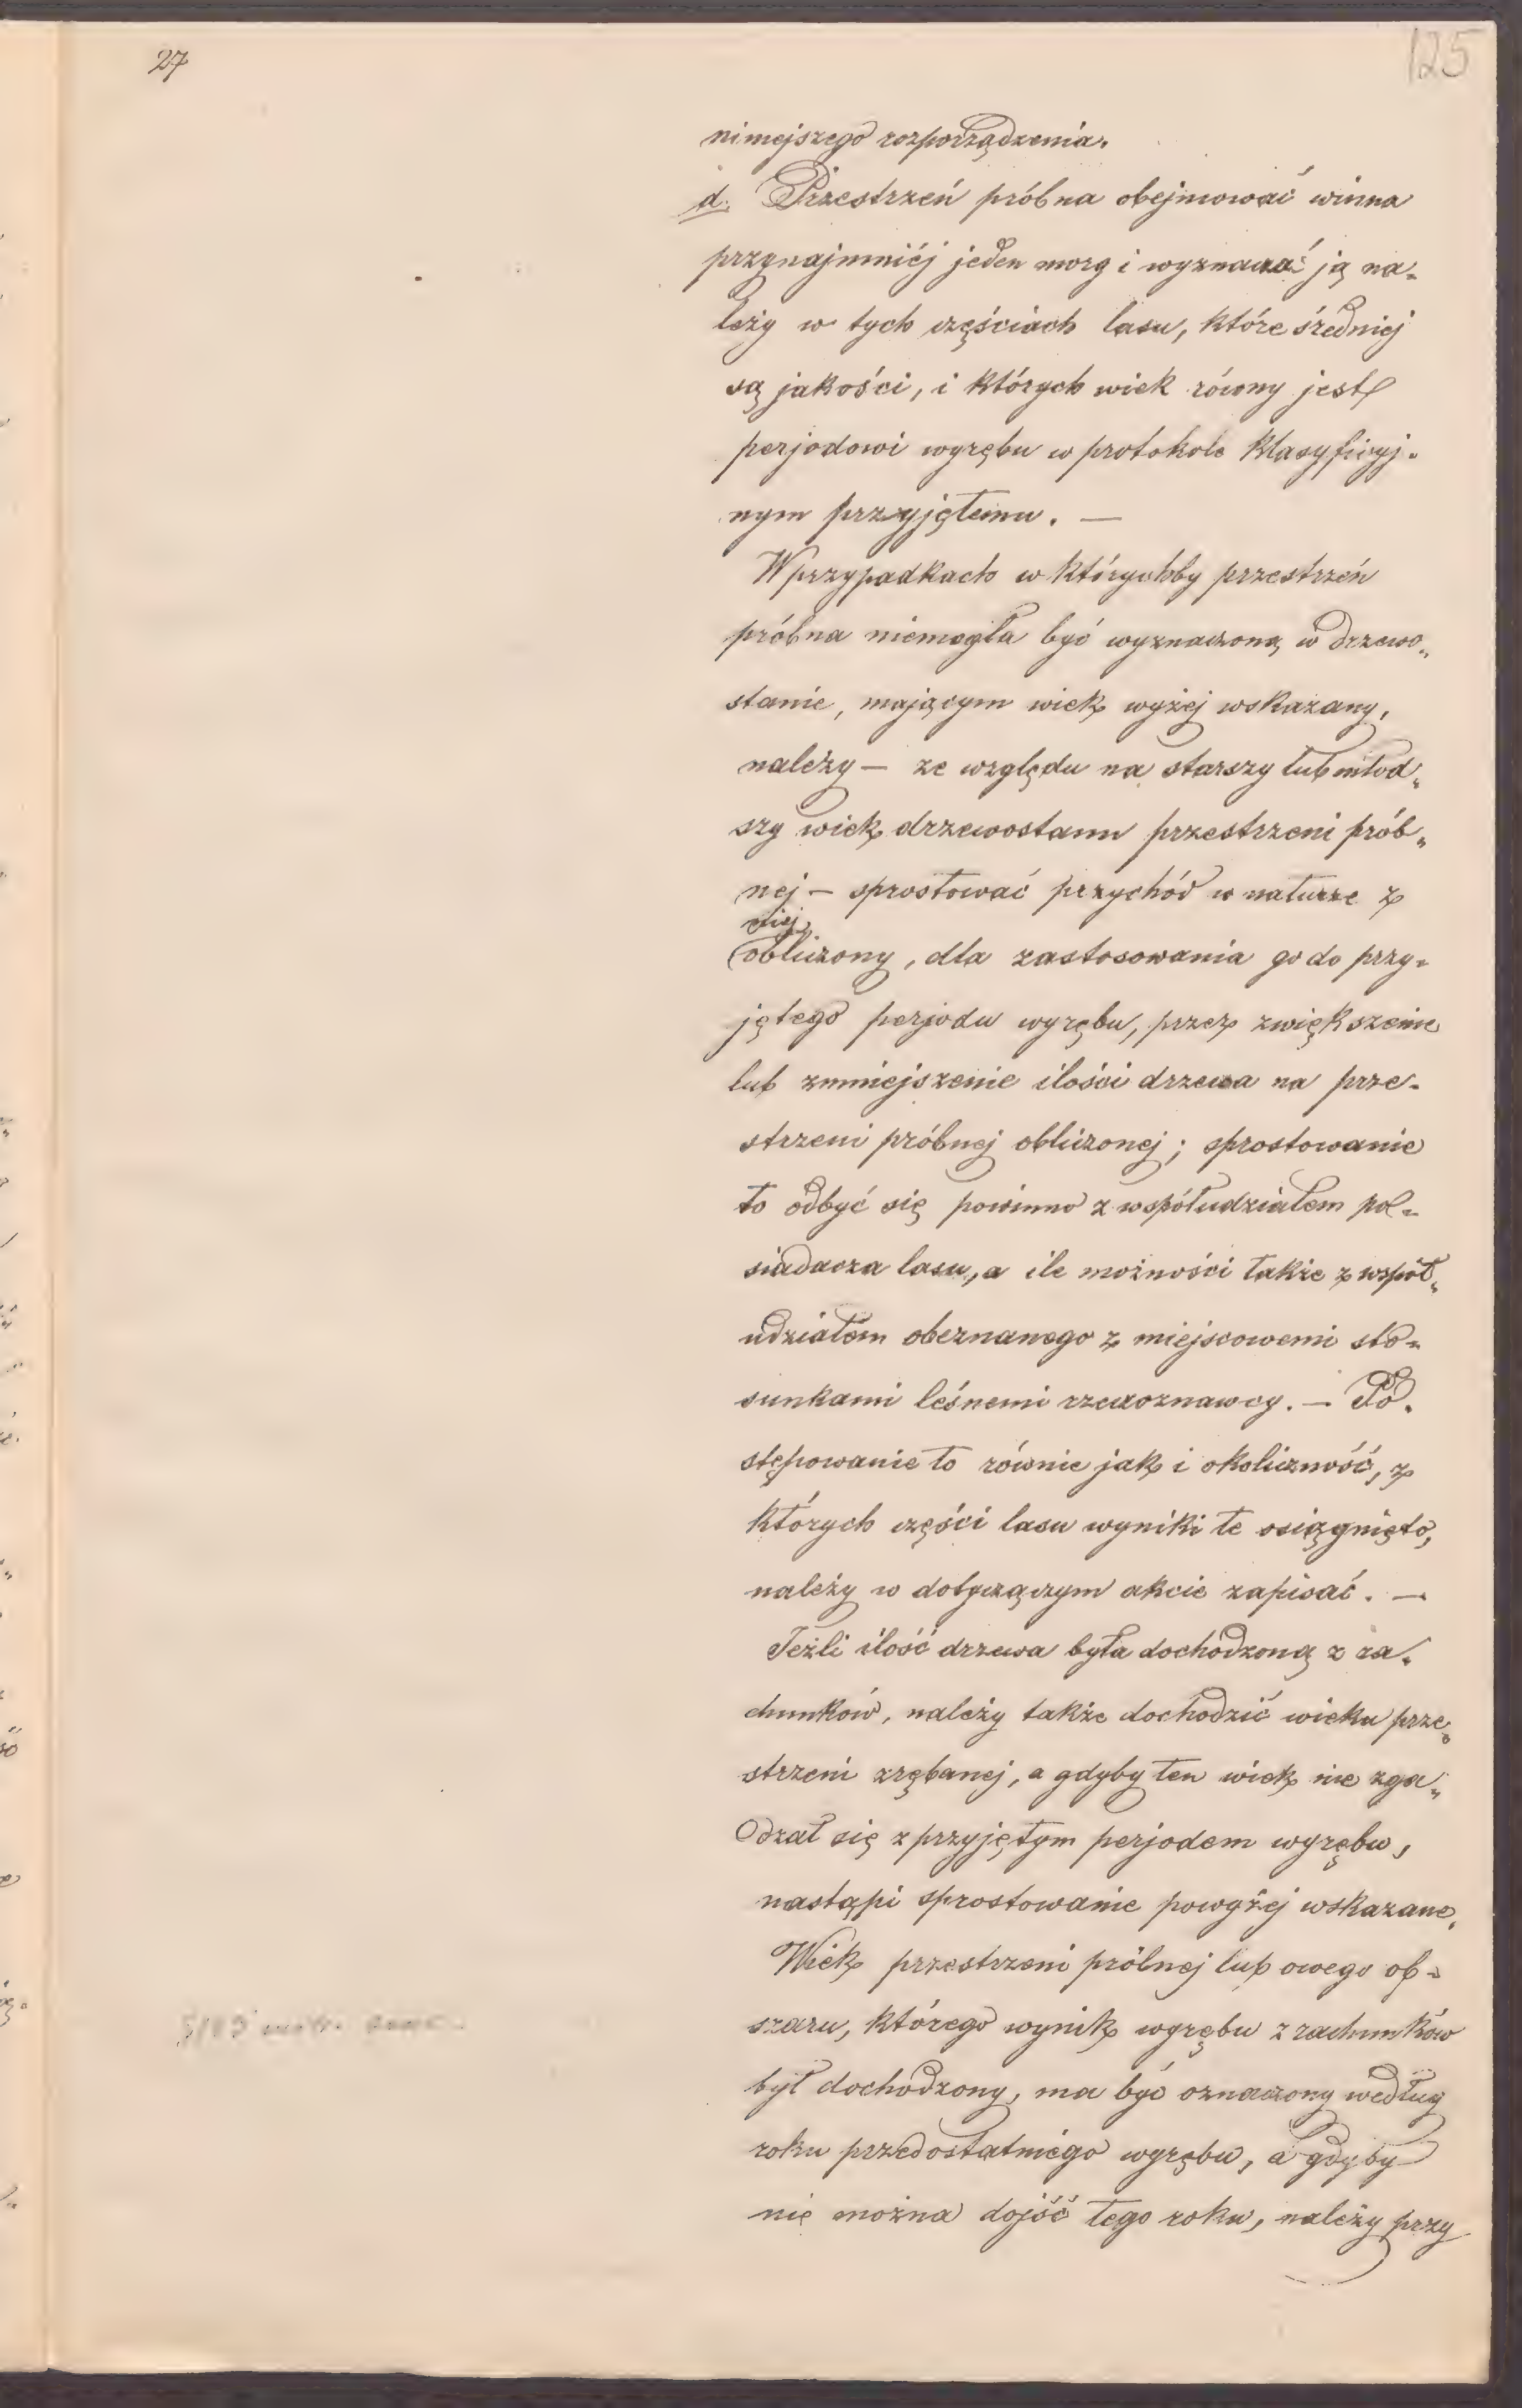 27
125
niniejszego rozporządzenia.
d. Przestrzeń próbna obejmować winna
przynajmniéj jeden morg i wyznaczać ją na-
leży w tych częściach lasu, które średniej
są jakości, i których wiek równy jest
perjodowi wyrębu w protokole klasyficyj-
nym przyjętemu. —
W przypadkach w którychby przestrzeń
próbna niemogła być wyznaczoną w drzewo-
stanie, mającym wiek wyżej wskazany,
należy — ze względu na starszy lub młod-
szy wiek drzewostanu przestrzeni prób-
nej — sprostować przychód w naturze z
niej
obliczony, dla zastosowania go do przy-
jętego perjodu wyrębu, przez zwiększenie
lub zmniejszenie ilości drzewa na prze-
strzeni próbnej obliczonej; sprostowanie
to odbyć się powinno z współudziałem po-
siadacza lasu, a ile możności także z współ-
udziałem obeznanego z miejscowemi sto-
sunkami leśnemi rzeczoznawcy. — Po-
stępowanie to równie jak i okoliczność, z
których części lasu wyniki te osiągnięto,
należy w dotyczącym akcie zapisać. —
Jeżli ilość drzewa była dochodzoną z ra-
chunków, należy także dochodzić wieku prze-
strzeni zrębanej, a gdyby ten wiek nie zga-
dzał się z przyjętym perjodem wyrębu,
nastąpi sprostowanie powyżej wskazane.
Wiek przestrzeni próbnej lub owego ob-
szaru, którego wynik wyrębu z rachunków
był dochodzony, ma być oznaczony według
roku przedostatniego wyrębu, a gdyby
nie można dojść tego roku, należy przy